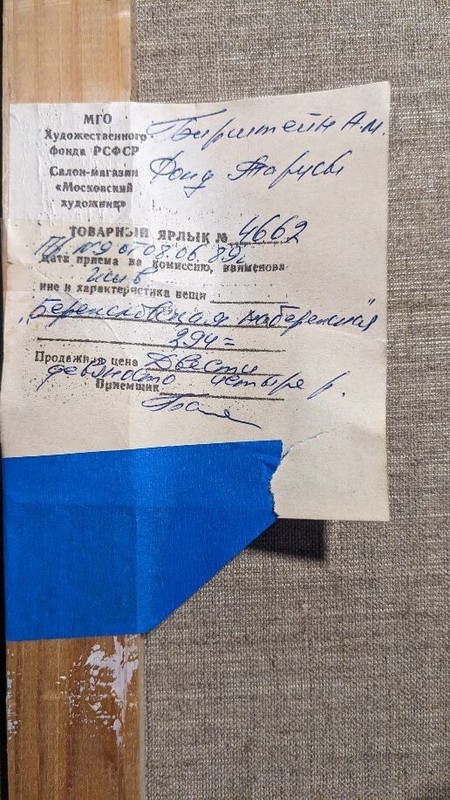 МГО
Художественного
фонда РСФСР
Салон-магазин
«Московский
художник»
Бирштейн А.М.
Фонд Тарусы
ТОВАРНЫЙ ЯРЛЫК № 4662
Пр. №9 от 08.06.89г.
Дата приема на комиссию, наименова-
ние и характеристика вещи
„Бережковская набережная"
294=
Продажная цена Двести
девяносто четыре р.
Приемщик